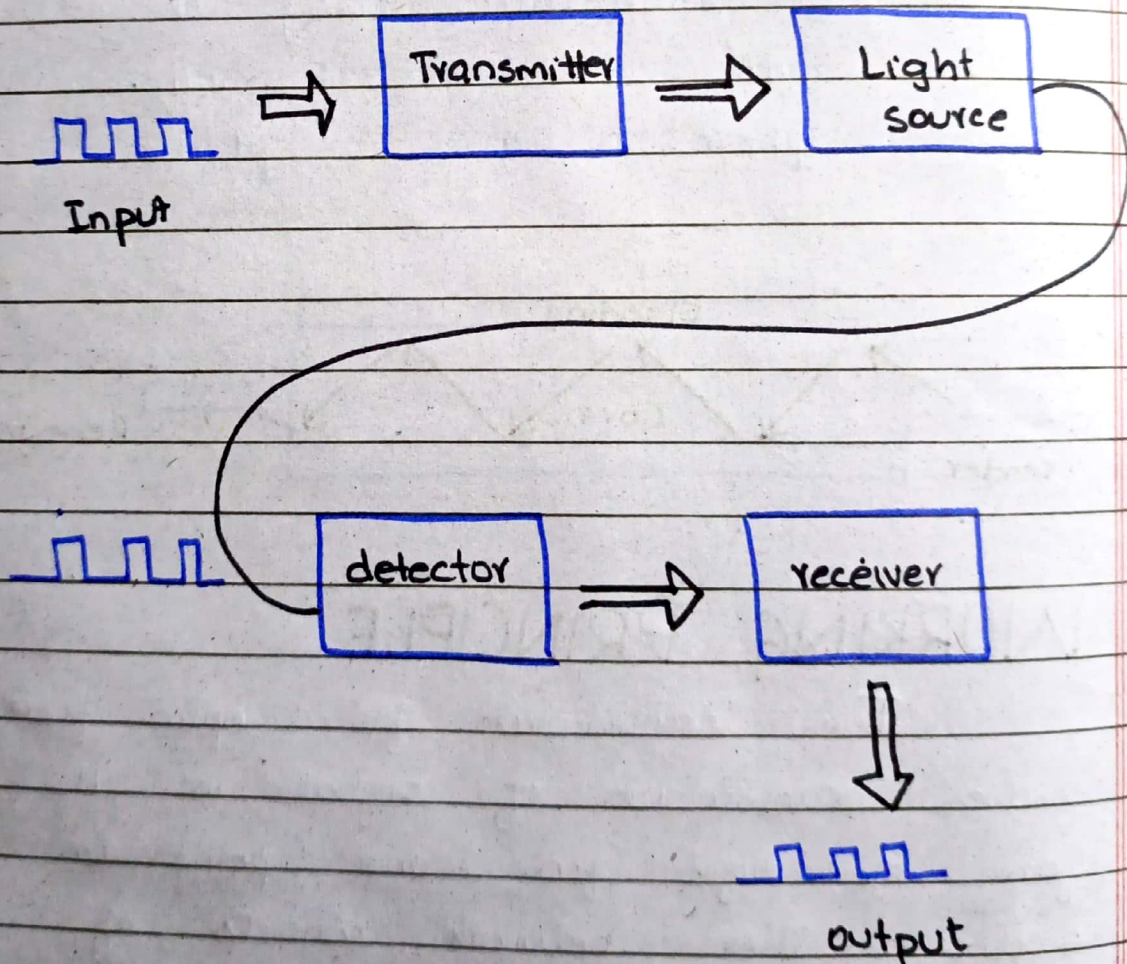 Transmitter
Light
source
Input
detector
receiver
output